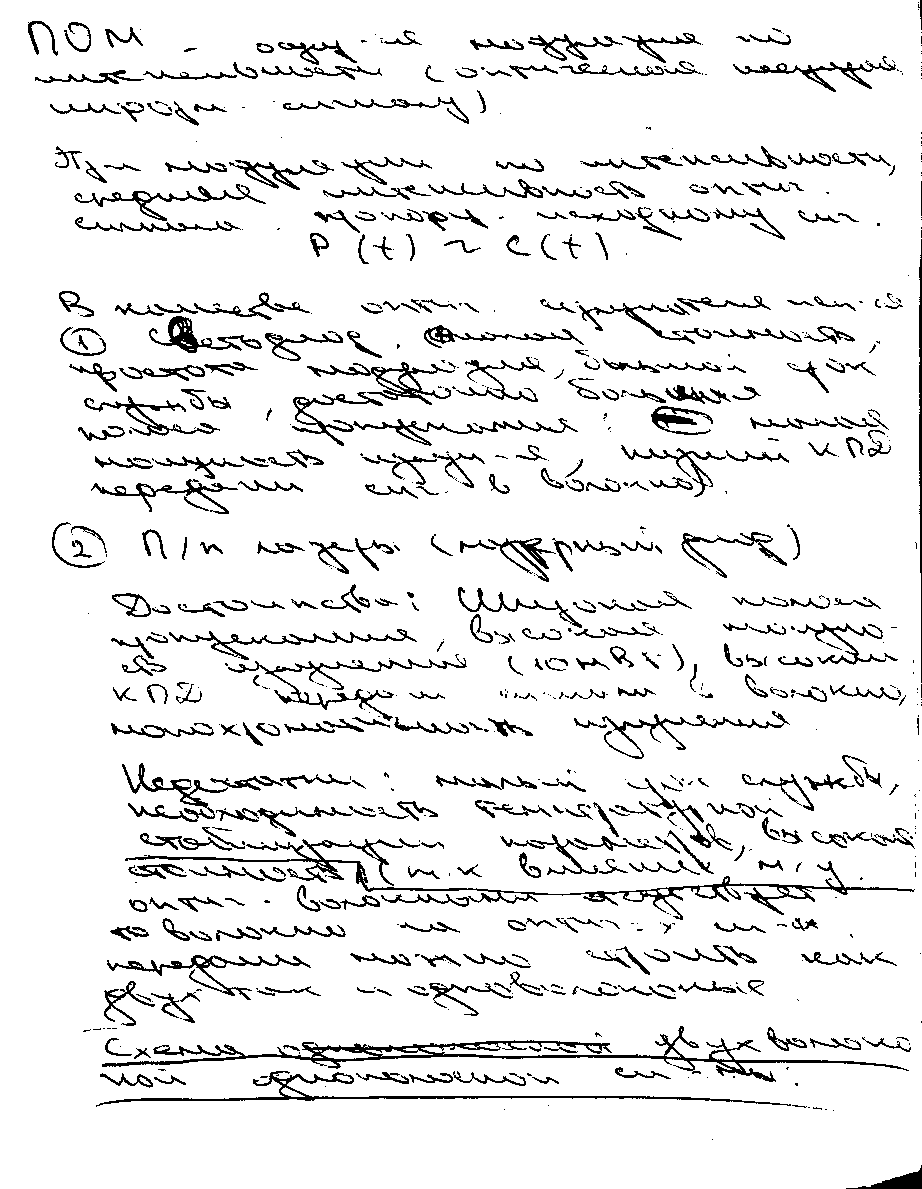 ПОМ - осущ-ся модуляция по
интенсивности (оптической несущей
информ. сигналу)
При модуляции по интенсивности,
средняя интенсивность оптич.
сигнала пропорц. исходному сиг.
P(t) ~ C(t)
В качестве оптич. излучателя исп-ся
① Светодиод, (малая стоимость,
простота модуляции, большой срок
службы, достаточно большая
полоса пропускания; малая
мощность излуч-я, низкий КПД
передачи сиг. в волокно).
② П/п лазеры (лазерный диод)
Достоинства: Широкая полоса
пропускания, высокая мощно-
сть излучений (10мВт), высокий
КПД передачи в волокно,
монохроматичность излучения
Недостатки: малый срок службы,
необходимость температурной
стабилизации параметров, высокая
стоимость (т.к влияние м/у
оптич. волокнами отсутствует
то волокно оптич-х
передачи можно строить как
двух так и одноволоконные
Схема двухволокон
ной однополосной сис-мы: